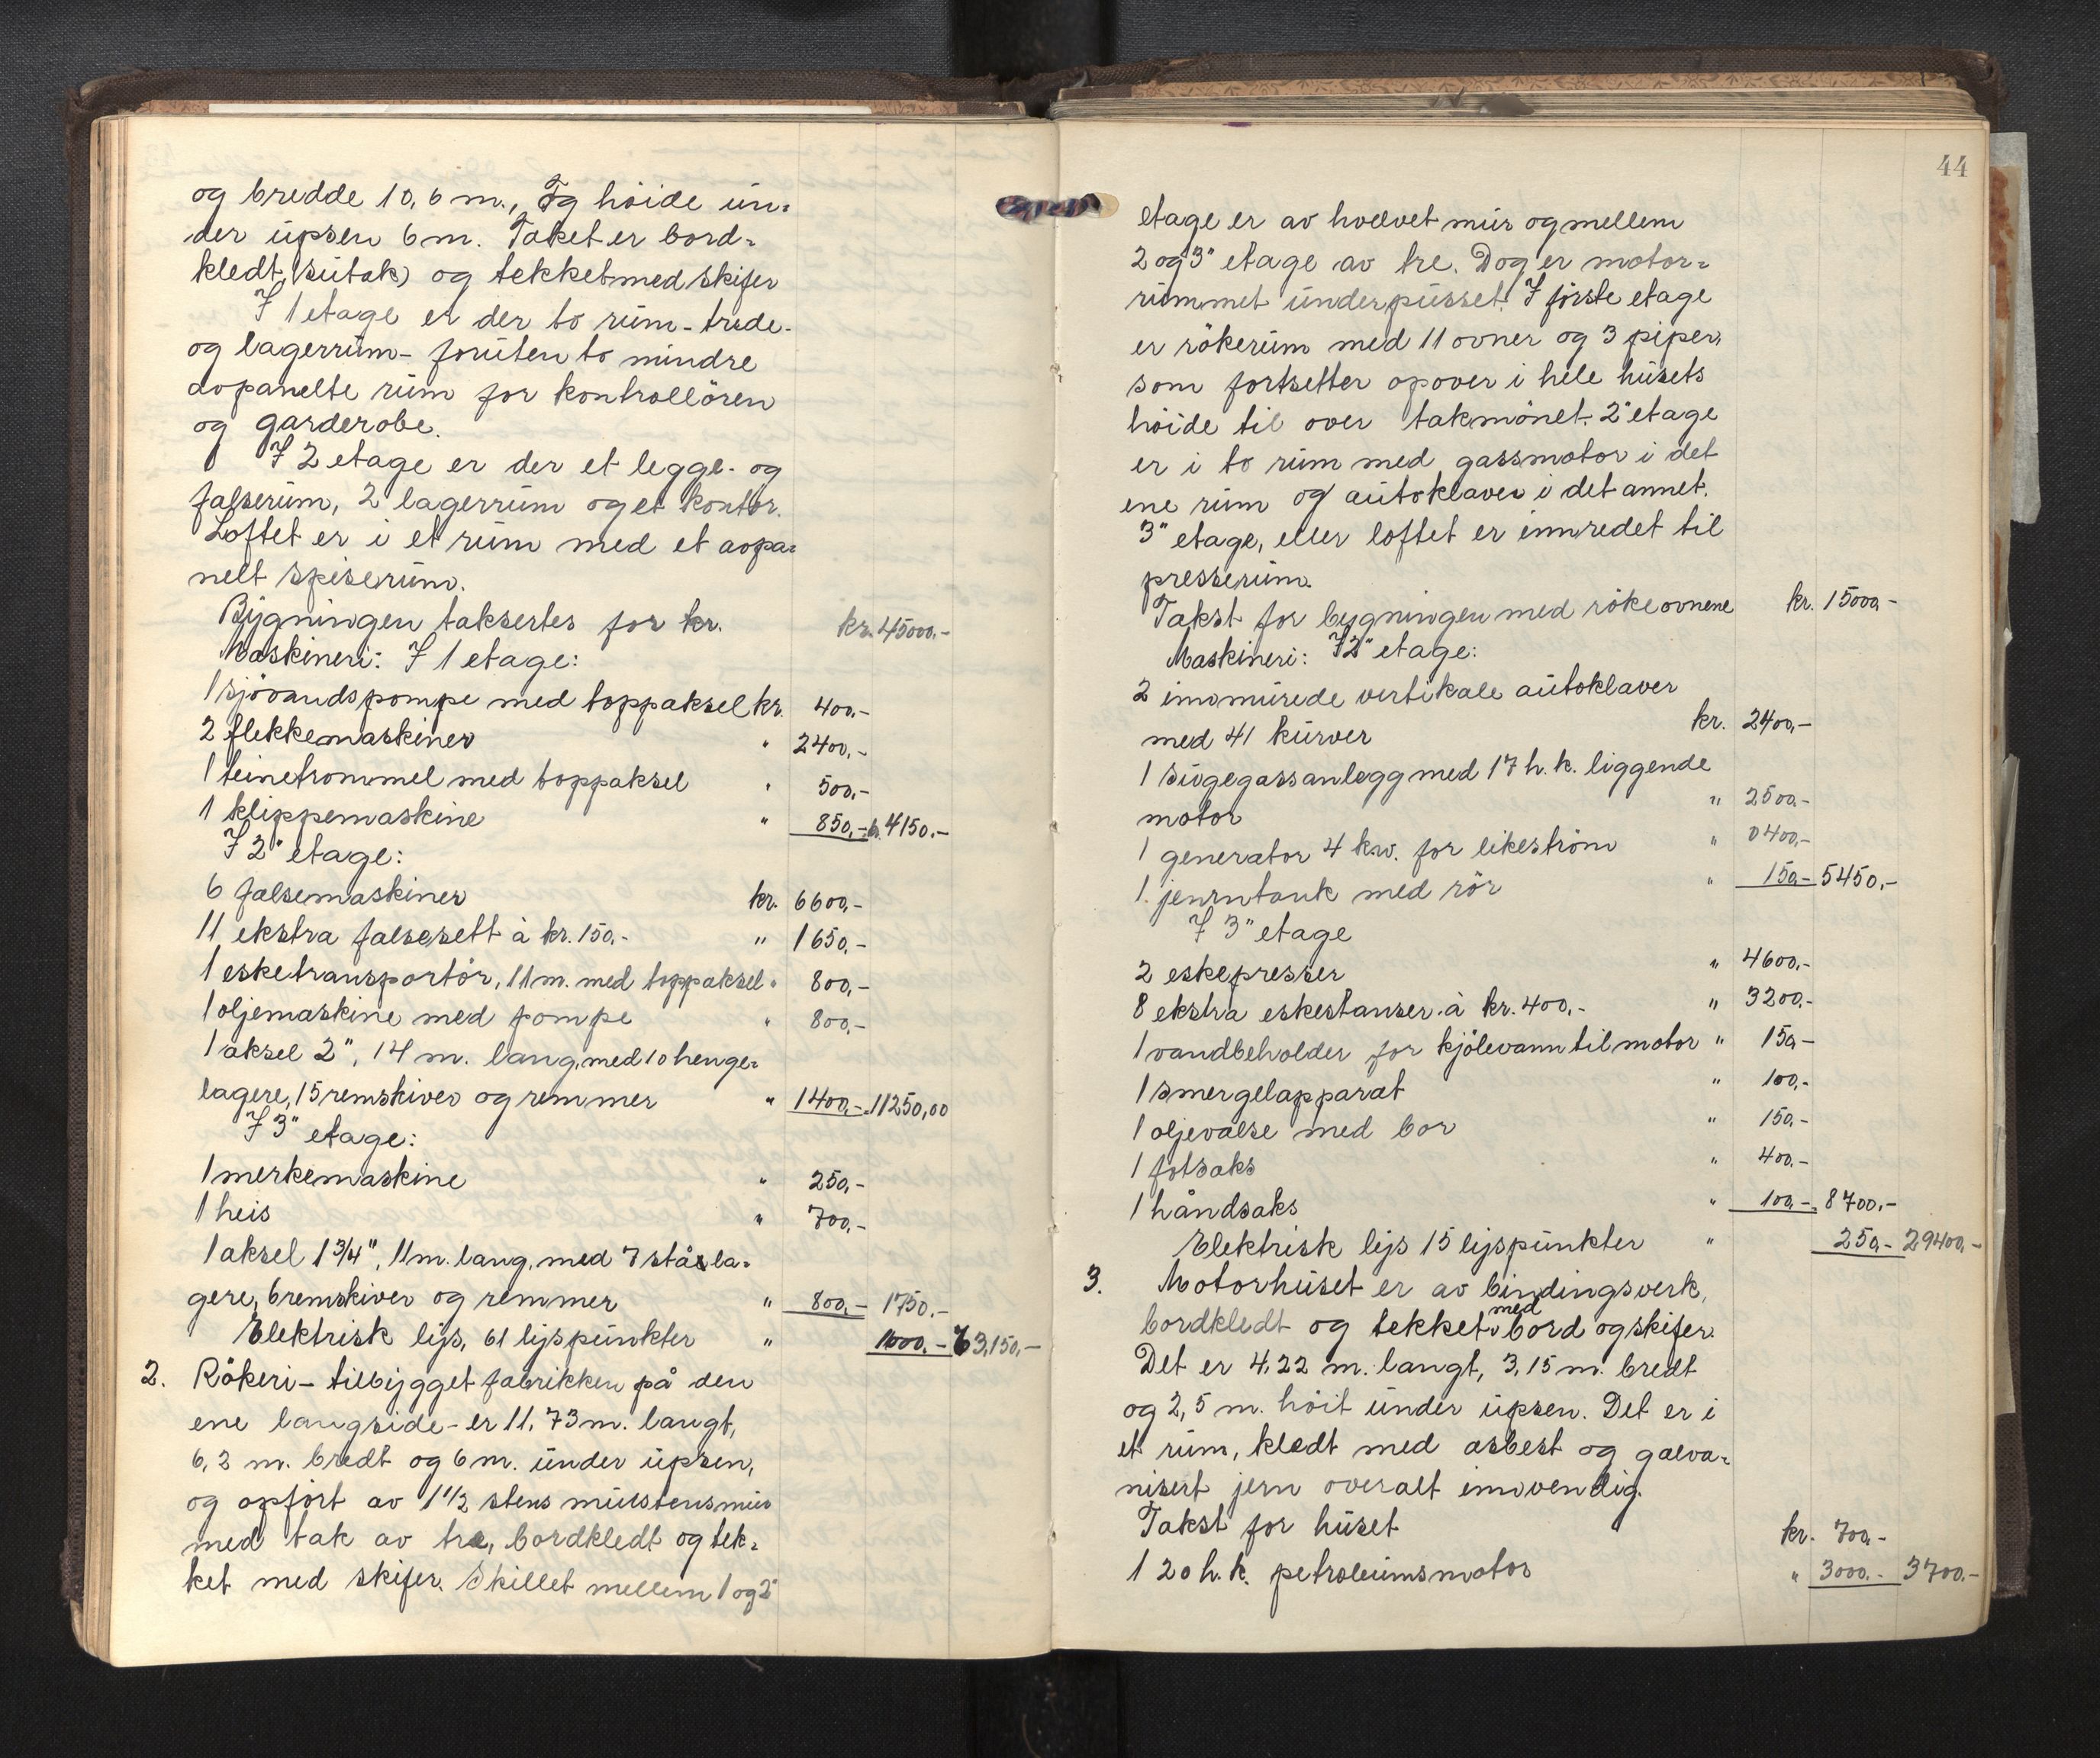 og bredde 10,6 m., og høide un=
der upsen 6 m. Taket er bord=
kledt (sutak) og tekket med skifer
I 1 etage er der to rum - trede-
og lagerrum - foruten to mindre
avpanelte rum for kontrollören
og garderobe.
I 2 etage er der et legge- og
falserum, 2 lagerrum og et kontor.
Loftet er i et rum med et avpa=
nelt spiserum.
Bygningen takseres for kr. kr. 45000.-
Maskineri: I 1 etage:
1 sjövandspompe med toppaksel kr. 400,-
2 flekkemaskiner " 2400,-
1 teinetrommel med toppaksel " 500,-
1 klippemaskine " 850,- kr. 4150.-
I 2" etage:
6 falsemaskiner kr. 6600,-
11 ekstra falsesett à kr. 150,- " 1650,-
1 esketransportör, 11 m. med toppaksel " 800,-
1 oljemaskine med pompe " 800,-
1 aksel 2", 14 m. lang, med 10 henge=
lagere, 15 remskiver og remmer " 1400,- 11250,00
I 3" etage:
1 merkemaskine " 250,-
1 heis " 700,-
1 aksel 1 3/4", 11 m. lang, med 7 ståla=
gere, 6 remskiver og remmer " 800,- 1750.-
Elektrisk lys, 61 lyspunkter " 1000.- 63,150,-
2. Rökeri - tilbygget fabrikken på den
ene langside - er 11,73 m. langt,
6,2 m. bredt og 6 m. under upsen,
og opfört av 1 1/2 stens murstensmur
med tak av tre, bordkledt og tek=
ket med skifer. Skillet mellem 1 og 2"
44
etage er av hvelvet mur og mellem
2 og 3" etage av tre. Dog er motor=
rummet underpusset. I förste etage
er rökerum med 11 ovner og 3 piper,
som fortsetter opover i hele husets
höide til over takmönet. 2" etage
er i to rum med gassmotor i det
ene rum og autoklaver i det annet.
3" etage, eller loftet er innredet til
presserum.
Takst for bygningen med rökeovnene kr. 15000,-
Maskineri: I 2" etage:
2 innmurede vertikale autoklaver
med 41 kurver kr. 2400,-
1 sugegassanlegg med 17 h.k. liggende
motor " 2500,-
1 generator 4 kw. for likeström " 0400,-
1 jerntank med rör " 150,- 5450,-
I 3" etage
2 eskepresser " 4600,-
8 ekstra eskestanser à kr. 400,- " 3200,-
1 vandbeholder for kjölevann til motor " 150,-
1 smergelapparat " 100,-
1 oljevalse med bor " 150,-
1 fotsaks " 400,-
1 håndsaks " 100,- 8700,-
Elektrisk lys 15 lyspunkter " 250,- 29400,-
3. Motorhuset er av bindingsverk,
bordkledt og tekket med bord og skifer.
Det er 4,22 m. langt, 3,15 m. bredt
og 2,5 m. höit under upsen. Det er i
et rum, kledt med asbest og galva=
nisert jern overalt innvendig.
Takst for huset kr. 700,-
1 20 h.k. petroleumsmotor " 3000.- 3700,-